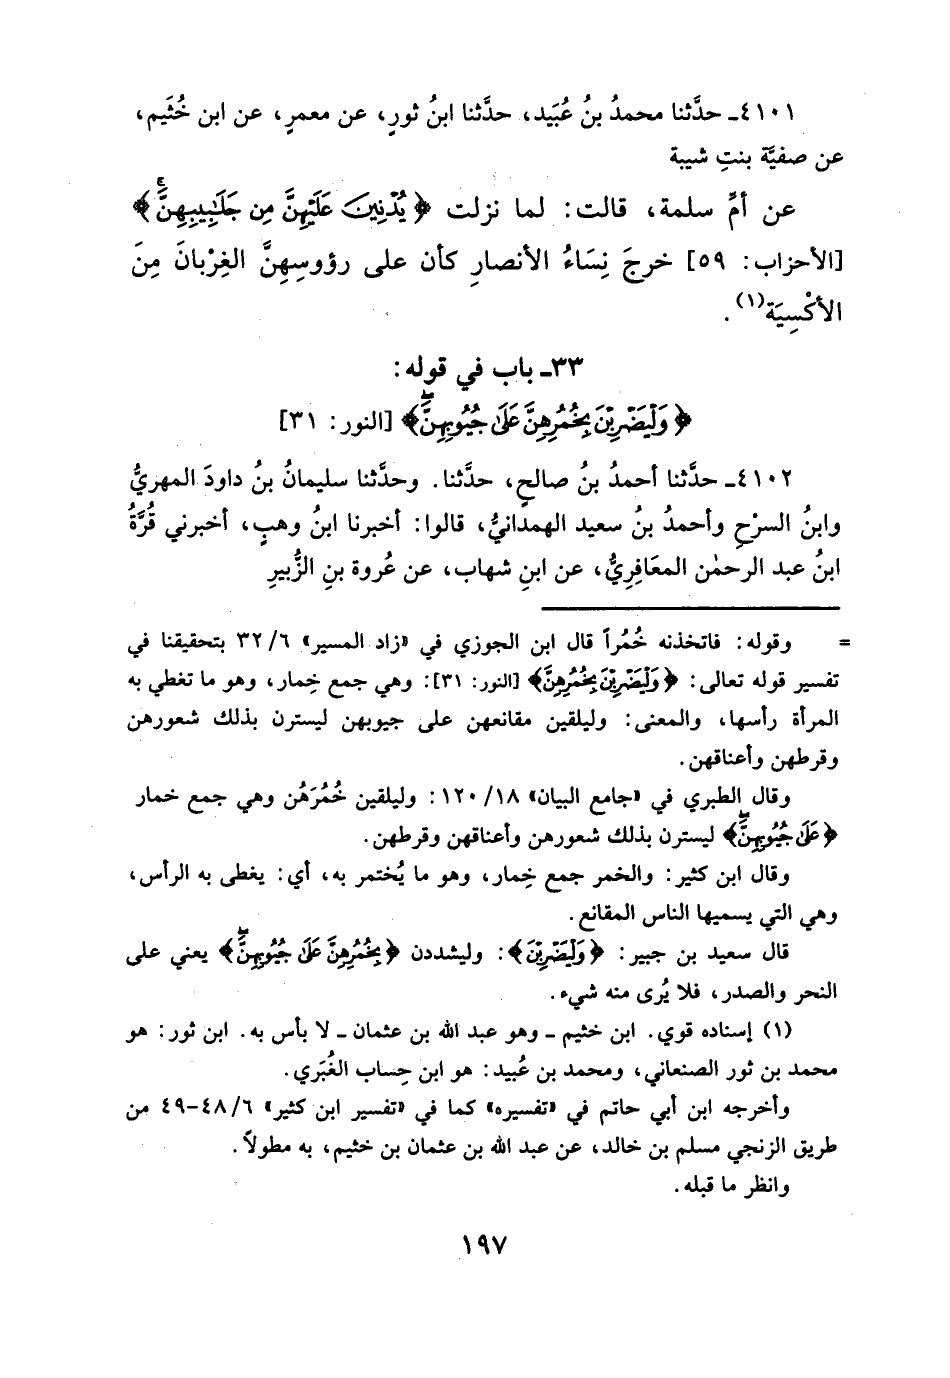 ٤١٠١ـ حدَّثنا محمدُ بنُ عُبَيد، حدَّثنا ابنُ ثورٍ، عن معمرٍ، عن ابن خُثَيم،
عن صفيَّة بنتِ شيبة
عن أمِّ سلمة، قالت: لما نزلت ﴿يُدْنِينَ عَلَيْهِنَّ مِن جَلَٰبِيبِهِنَّۚ﴾
[الأحزاب: ٥٩] خرجَ نِسَاءُ الأنصارِ كأن على رؤوسِهِنَّ الغِرْبانَ مِنَ
الأكْسِيَة(١).
٣٣ـ باب في قوله:
﴿وَلْيَضْرِبْنَ بِخُمُرِهِنَّ عَلَىٰ جُيُوبِهِنَّۖ﴾ [النور: ٣١]
٤١٠٢ـ حدَّثنا أحمدُ بنُ صالحٍ، حدَّثنا. وحدَّثنا سليمانُ بنُ داودَ المهريُّ
وابنُ السرْحِ وأحمدُ بنُ سعيد الهمدانيُّ، قالوا: أخبرنا ابنُ وهبٍ، أخبرني قُرَّةُ
ابنُ عبد الرحمٰن المعَافِرِيُّ، عن ابنِ شهاب، عن عُروة بنِ الزُّبيرِ
= وقوله: فاتخذنه خُمُراً قال ابن الجوزي في «زاد المسير» ٦/ ٣٢ بتحقيقنا في
تفسير قوله تعالى: ﴿وَلْيَضْرِبْنَ بِخُمُرِهِنَّ﴾ [النور: ٣١]: وهي جمع خِمار، وهو ما تغطي به
المرأة رأسها، والمعنى: وليلقين مقانعهن على جيوبهن ليسترن بذلك شعورهن
وقرطهن وأعناقهن.
وقال الطبري في «جامع البيان» ١٨/ ١٢٠: وليلقين خُمُرَهُن وهي جمع خمار
﴿عَلَىٰ جُيُوبِهِنَّۖ﴾ ليسترن بذلك شعورهن وأعناقهن وقرطهن.
وقال ابن كثير: والخمر جمع خِمار، وهو ما يُختمر به، أي: يغطى به الرأس،
وهي التي يسميها الناس المقانع.
قال سعيد بن جبير: ﴿وَلْيَضْرِبْنَ﴾: وليشددن ﴿بِخُمُرِهِنَّ عَلَىٰ جُيُوبِهِنَّۖ﴾ يعني على
النحر والصدر، فلا يُرى منه شيء.
(١) إسناده قوي. ابن خثيم ـ وهو عبد الله بن عثمان ـ لا بأس به. ابن ثور: هو
محمد بن ثور الصنعاني، ومحمد بن عُبيد: هو ابن حِساب الغُبَري.
وأخرجه ابن أبي حاتم في «تفسيره» كما في «تفسير ابن كثير» ٦/ ٤٨-٤٩ من
طريق الزنجي مسلم بن خالد، عن عبد الله بن عثمان بن خثيم، به مطولاً.
وانظر ما قبله.
١٩٧